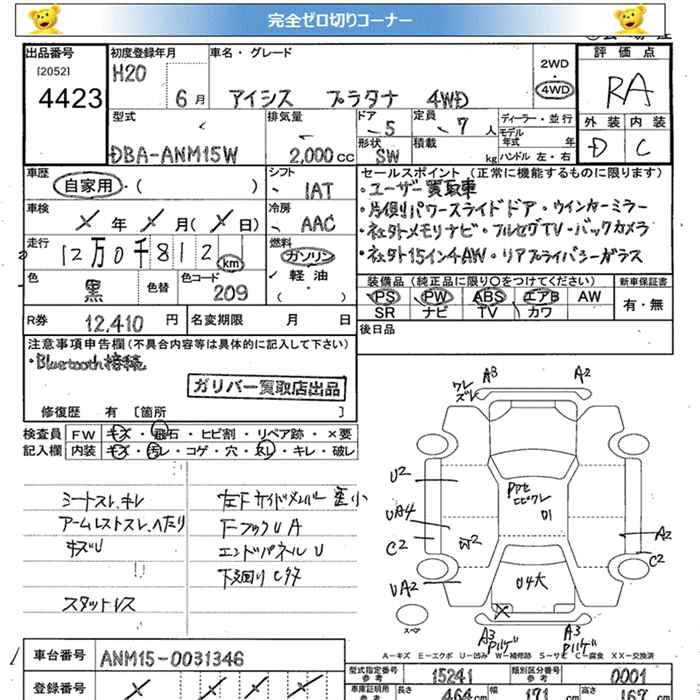 完全ゼロ切りコーナー
出品番号
[2052]
4423
初度登録年月
H20
6月
車名・グレード
アイシス プラタナ 4WD
2WD
4WD
評価点
RA
外装 内装
D C
型式
DBA-ANM15W
排気量
2,000cc
ドア
5
定員
7人
形状
SW
積載
kg
ディーラー・並行
モデル年式 年
ハンドル 左・右
車歴
自家用・( )
シフト
IAT
セールスポイント(正常に機能するものに限ります)
・ユーザー買取車
・片側パワースライドドア・ウインカーミラー
・社外メモリナビ・フルセグTV・バックカメラ
・社外15インチAW・リアプライバシーガラス
車検
年 月( 日)
冷房
AAC
走行
12万0千812km
燃料
ガソリン
軽油
( ・ )
色
黒
色替
色コード
209
装備品(純正品に限り○をつけてください)
PS PW ABS エアB AW
SR ナビ TV カワ
新車保証書
有・無
R券
12,410円
名変期限 月 日
後日品
注意事項申告欄(不具合内容等は具体的に記入して下さい)
・Bluetooth接続
ガリバー買取店出品
修復歴 有 [箇所 ]
検査員 FW キズ・飛石・ヒビ割・リペア跡・×要
記入欄 内装 キズ・汚レ・コゲ・穴・スレ・キレ・破レ
シートスレ、キレ
アームレストスレ、へたり
キズU
スタットレス
左Fサイドメンバー 歪小
FフックUA
エンドパネルU
下廻りサビ
ワレ
ズレ
A3
A2
U2
UA4
C2
UA2
U1
U4大
A2
C2
スペア
A3
A3
A－キズ E－エクボ U－凹み W－補修跡 S－サビ C－腐食 XX－交換済
車台番号
ANM15-0031346
登録番号
型式指定番号
参考
15241
類別区分番号
参考
0001
車庫証明用
参考
長さ
464cm
幅
171cm
高さ
167cm